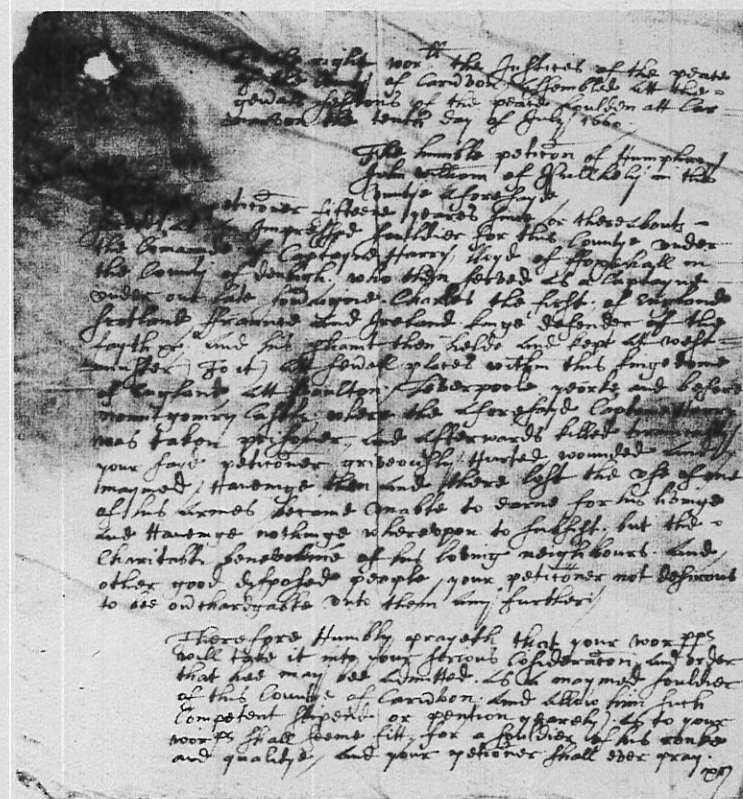 To the right worll the Justices of the peace
of the County of Carnvon Assembled Att the
genrall sessions of the peace houlden att Car
narvon the tenth day of July 1660
The humble peticon of Humphrey
John William of Pullhely in the
Countye Aforesayd
peticoner fifteene yeares since or thereabouts
Impressed souldier for this Countye under
the Comande of Captayne Harry lloyd of hall in
the County of denbigh, who then served As a Captayne
under our late soveraigne Charles the first of England
Scotland ffraunce And Ireland kinge defender of the
fayth And his then helde And kept At west
minster, To it, Att severall places within this kingdome
of England Att Leverpoole and before
Mountgomry Castle, where the Aforesayd Captayne Harry
was taken prisoner, And Afterwards killed
your sayd peticoner grievously Hurted wounded And
maymed, Haveinge then And there lost the use of one
of his Armes became unable to earne for his livinge
And Haveinge nothinge whereupon to subsist, but the
Charitable benevolence of his loving neighbours And
other good disposed people, your peticoner not desirous
to bee overchardgable unto them Any further
Therefore Humbly prayeth that your worpps
will take it into your serious Consideracon And order
that hee may bee Admitted As A maymed souldier
of this Countye of Carnvon And Allow him such
Competent stipend or pention yearely As to your
worpps shall seeme fitt, for a souldier of his ranke
and qualitye, And your peticoner shall ever pray